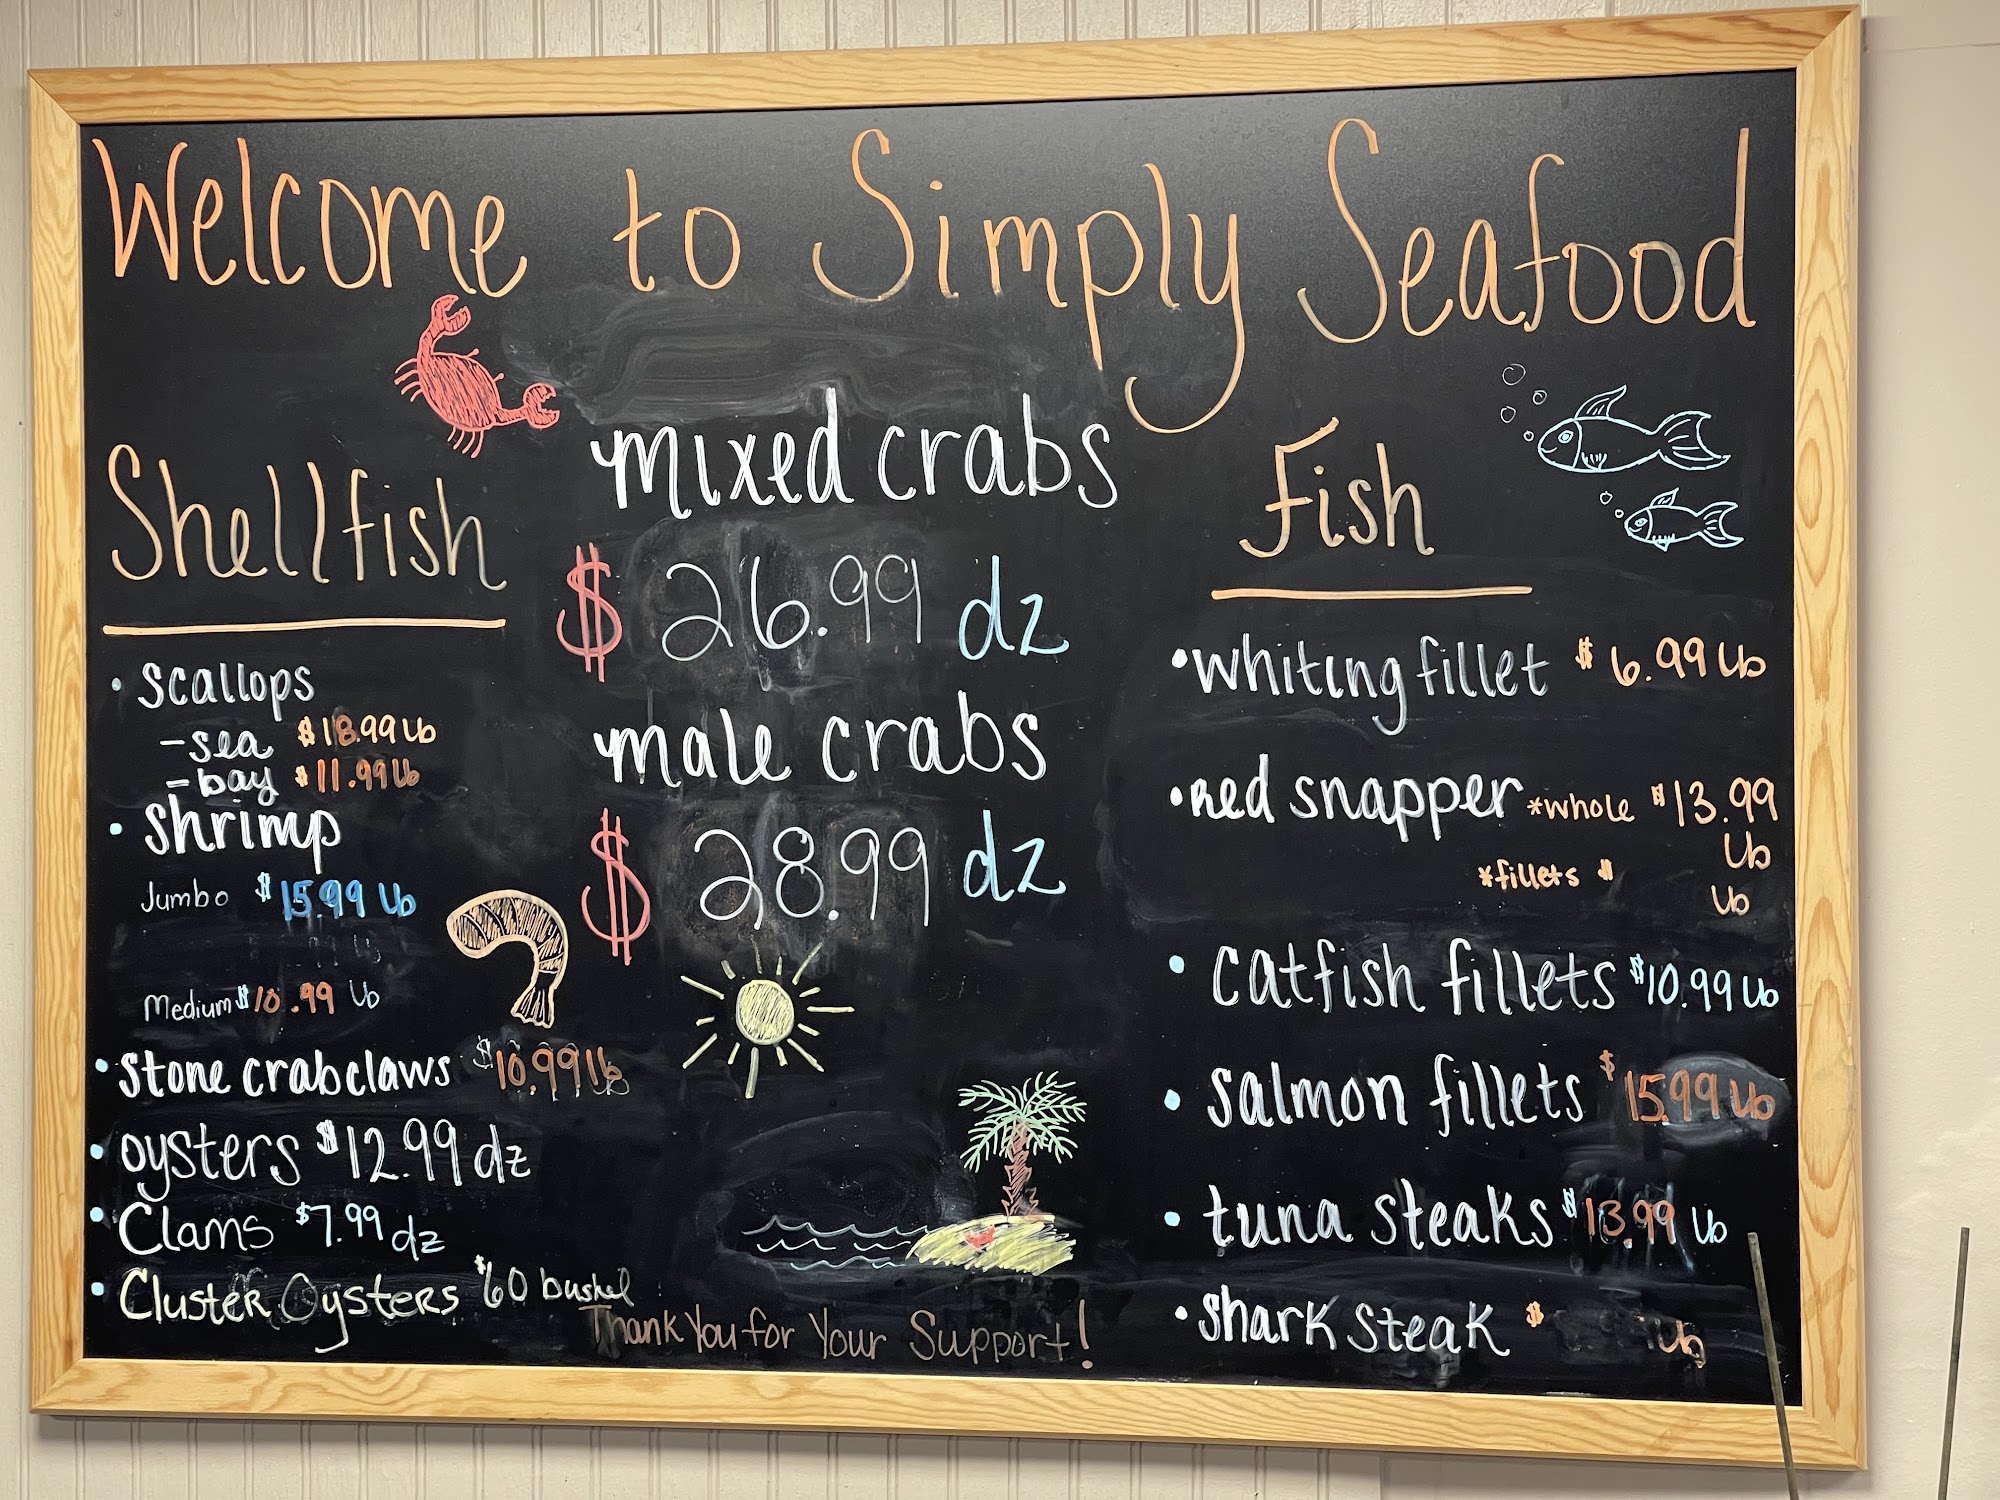 Welcome to Simply Seafood
Shellfish
• Scallops
- sea $18.99 lb
- bay $11.99 lb
• Shrimp
Jumbo $15.99 lb
Medium $10.99 lb
• Stone crab claws $10.99 lb
• oysters $12.99 dz
• Clams $7.99 dz
• Cluster Oysters $60 bushel
mixed crabs
$26.99 dz
male crabs
$28.99 dz
Thank You for Your Support!
Fish
• whiting fillet $6.99 lb
• Red snapper *whole $13.99
lb
*fillets $
lb
• catfish fillets $10.99 lb
• salmon fillets $15.99 lb
• tuna steaks $13.99 lb
• shark steak $ lb